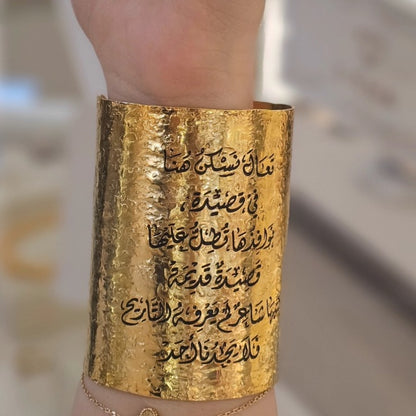 تَعَالَ نَسْكُنُ هُنَا
في قصيدة،
نوافذها تُطِلُّ عَلَيْهَا
قصيدةٌ قديمة
شاعر لم يعرفه التاريخ
فلا يجدنا أحد